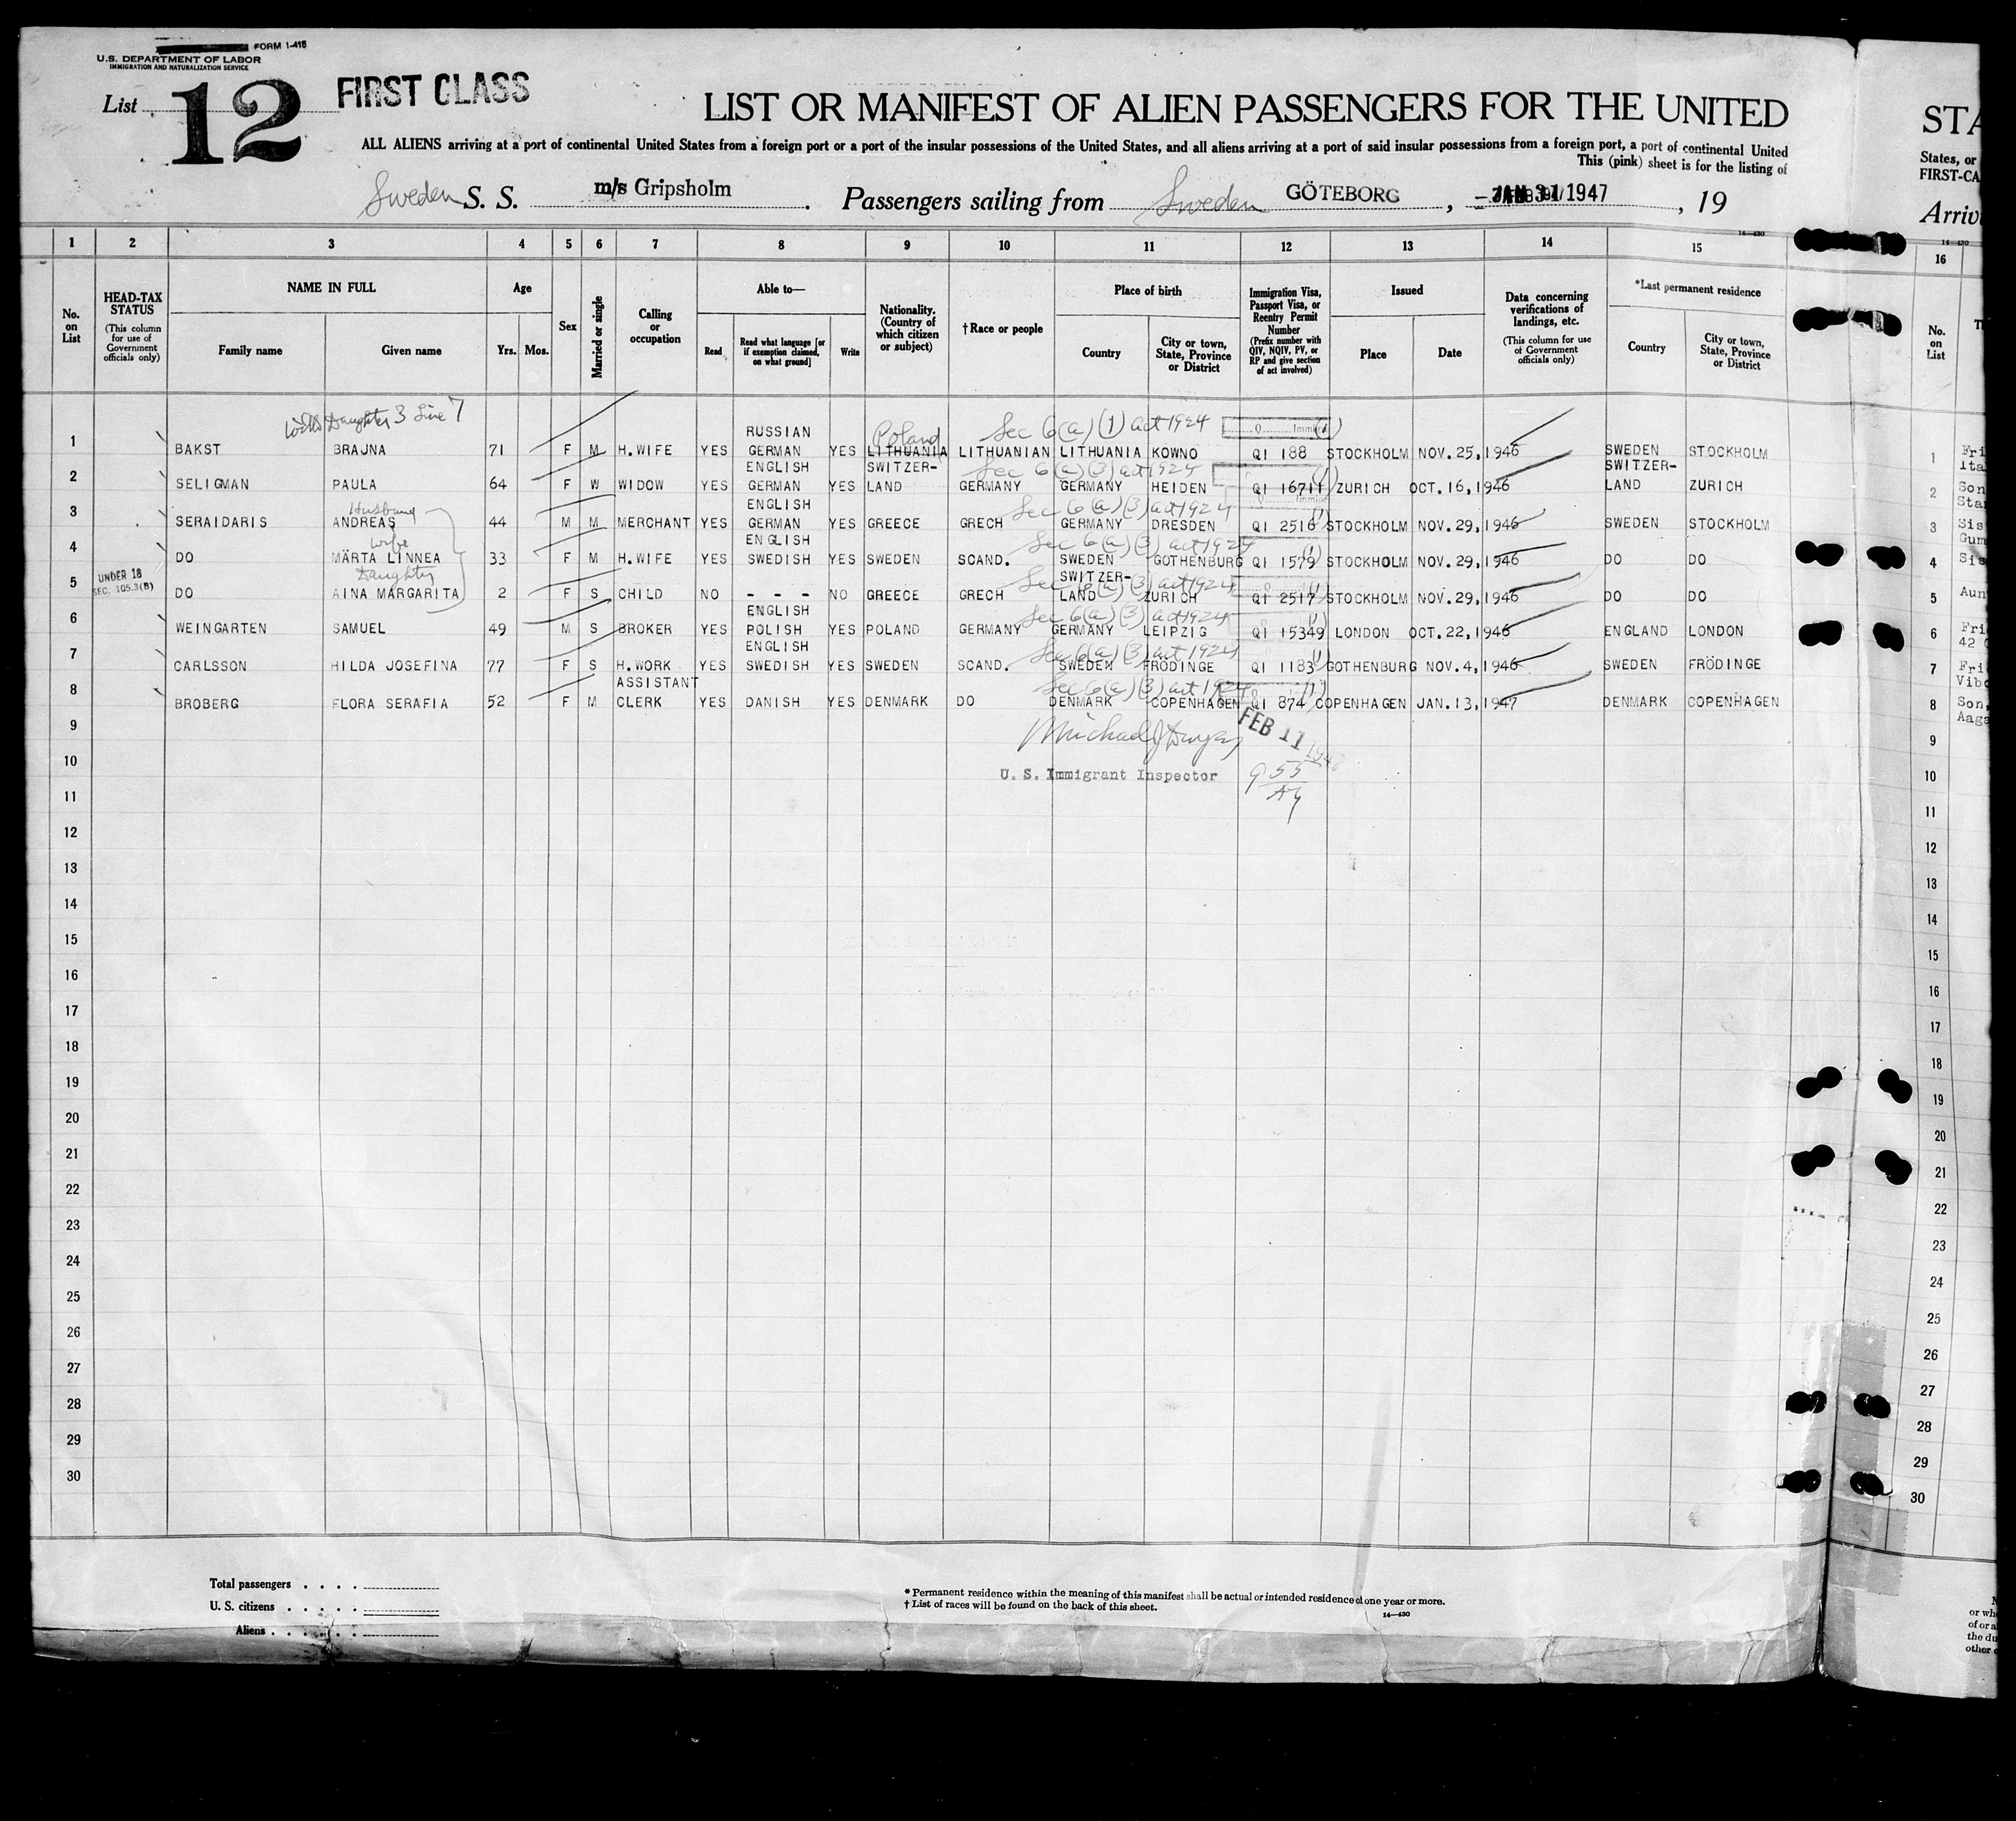 FORM I-415
U.S. DEPARTMENT OF LABOR
IMMIGRATION AND NATURALIZATION SERVICE
List 12 FIRST CLASS
LIST OR MANIFEST OF ALIEN PASSENGERS FOR THE UNITED STA
ALL ALIENS arriving at a port of continental United States from a foreign port or a port of the insular possessions of the United States, and all aliens arriving at a port of said insular possessions from a foreign port, a port of continental United States, or
This (pink) sheet is for the listing of FIRST-CA
Sweden S. S. m/s Gripsholm. Passengers sailing from Sweden GÖTEBORG, JAN 31 1947, 19 Arriv
1 2 3 4 5 6 7 8 9 10 11 12 13 14 15 16
No. on List
HEAD-TAX STATUS (This column for use of Government officials only)
NAME IN FULL Family name Given name
Age Yrs. Mos.
Sex
Married or single
Calling or occupation
Able to— Read Read what language [or if exemption claimed, on what ground] Write
Nationality. (Country of which citizen or subject)
† Race or people
Place of birth Country City or town, State, Province or District
Immigration Visa, Passport Visa, or Reentry Permit Number (Prefix number with QIV, NQIV, PV, or RP and give section of act involved)
Issued Place Date
Data concerning verifications of landings, etc. (This column for use of Government officials only)
*Last permanent residence Country City or town, State, Province or District
No. on List
with Daughter 3 Line 7
RUSSIAN Poland Sec 6(a)(1) act 1924
1 BAKST BRAJNA 71 F M H.WIFE YES GERMAN YES LITHUANIA LITHUANIAN LITHUANIA KOWNO QI 188 STOCKHOLM NOV.25,1946 SWEDEN STOCKHOLM 1 Fri
ENGLISH SWITZER- Sec 6(a)(3) act 1924 SWITZER- Ita
2 SELIGMAN PAULA 64 F W WIDOW YES GERMAN YES LAND GERMANY GERMANY HEIDEN QI 16711 ZURICH OCT.16,1946 LAND ZURICH 2 Son
Husband ENGLISH Sec 6(a)(3) act 1924 Sta
3 SERAIDARIS ANDREAS 44 M M MERCHANT YES GERMAN YES GREECE GRECH GERMANY DRESDEN QI 2516 STOCKHOLM NOV.29,1946 SWEDEN STOCKHOLM 3 Sis
wife ENGLISH Sec 6(a)(3) act 1924 Gun
4 DO MÄRTA LINNEA 33 F M H.WIFE YES SWEDISH YES SWEDEN SCAND. SWEDEN GOTHENBURG QI 1579 STOCKHOLM NOV.29,1946 DO DO 4 Sis
Daughter SWITZER- Sec 6(a)(3) act 1924
5 UNDER 18 SEC. 105.3(B) DO AINA MARGARITA 2 F S CHILD NO - - - NO GREECE GRECH LAND ZURICH QI 2517 STOCKHOLM NOV.29,1946 DO DO 5 Aun
ENGLISH Sec 6(a)(3) act 1924
6 WEINGARTEN SAMUEL 49 M S BROKER YES POLISH YES POLAND GERMANY GERMANY LEIPZIG QI 15349 LONDON OCT.22,1946 ENGLAND LONDON 6 Fri
ENGLISH Sec 6(a)(3) act 1924 42
7 CARLSSON HILDA JOSEFINA 77 F S H.WORK YES SWEDISH YES SWEDEN SCAND. SWEDEN FRÖDINGE QI 1183 GOTHENBURG NOV.4,1946 SWEDEN FRÖDINGE 7 Fri
ASSISTANT Sec 6(a)(3) act 1924 Vibo
8 BROBERG FLORA SERAFIA 52 F M CLERK YES DANISH YES DENMARK DO DENMARK COPENHAGEN QI 874 COPENHAGEN JAN.13,1947 DENMARK COPENHAGEN 8 Son,
Aaga
9 FEB 11 9
10 U. S. Immigrant Inspector 955 10
11 11
12 12
13 13
14 14
15 15
16 16
17 17
18 18
19 19
20 20
21 21
22 22
23 23
24 24
25 25
26 26
27 27
28 28
29 29
30 30
Total passengers . . . .
U. S. citizens . . . . .
Aliens . . . . . .
* Permanent residence within the meaning of this manifest shall be actual or intended residence of one year or more.
† List of races will be found on the back of this sheet.
14—430
or wh
of or a
the du
other